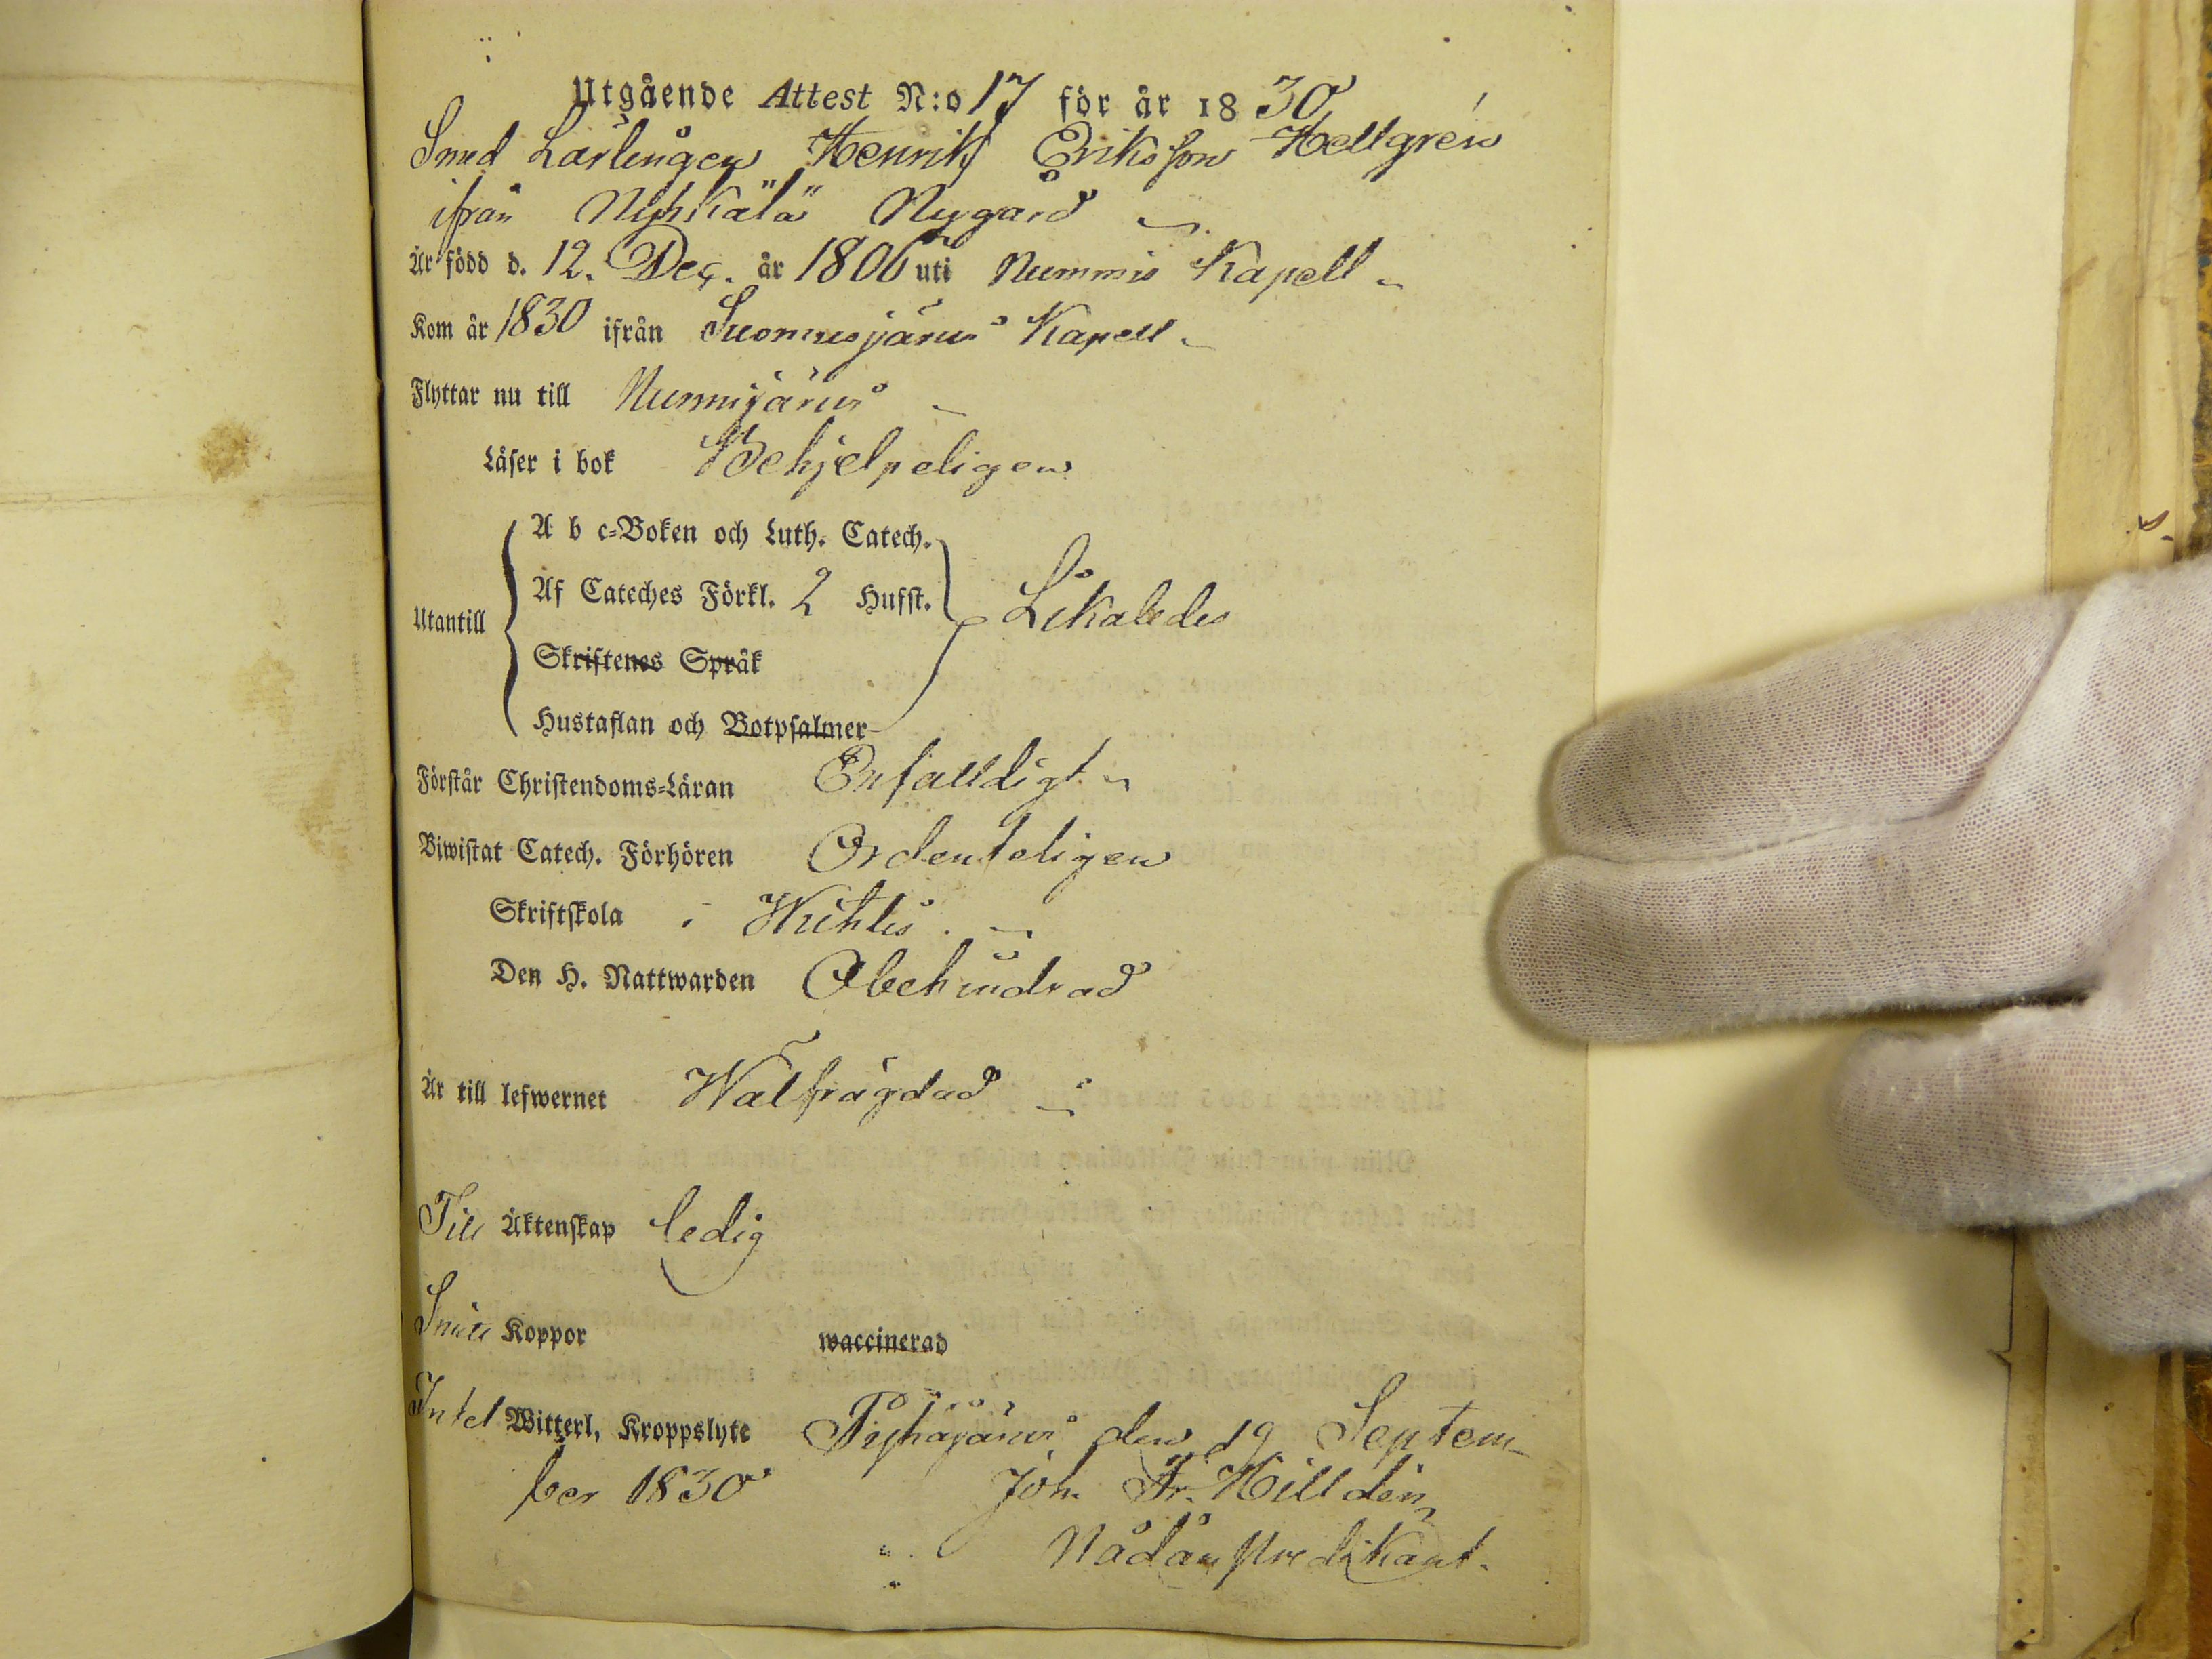 Utgående Attest N:o 17 för år 1830
Smed Lärlingen Henrik Eriksson Hellgrén
ifrån Nyhkälä Nygård
Är född d. 12. Dec. år 1806 uti Nummis Kapell
Kom år 1830 ifrån Suomusjärvi Kapell
Flyttar nu till Nurmijärvi
Läser i bok Behjelpeligen
A b c-Boken och Luth. Catech.
Utantill Af Cateches Förkl. 2 Hufst. Likaledes
Skriftenes Språk
Hustaflan och Botpsalmer
Förstår Christendoms-Läran Enfalldigt
Biwistat Catech. Förhören Ordenteligen
Skriftskola i Wichtis
Den H. Nattwarden Obehindrad
Är till lefwernet Wälfrägdad
Till Äktenskap ledig
Smitt Koppor waccinerad
Intet Witterl. Kroppslyte Pyhäjärvi den 19 Septem-
ber 1830 Joh. Fr. Hilldén
Nådårs predikant.